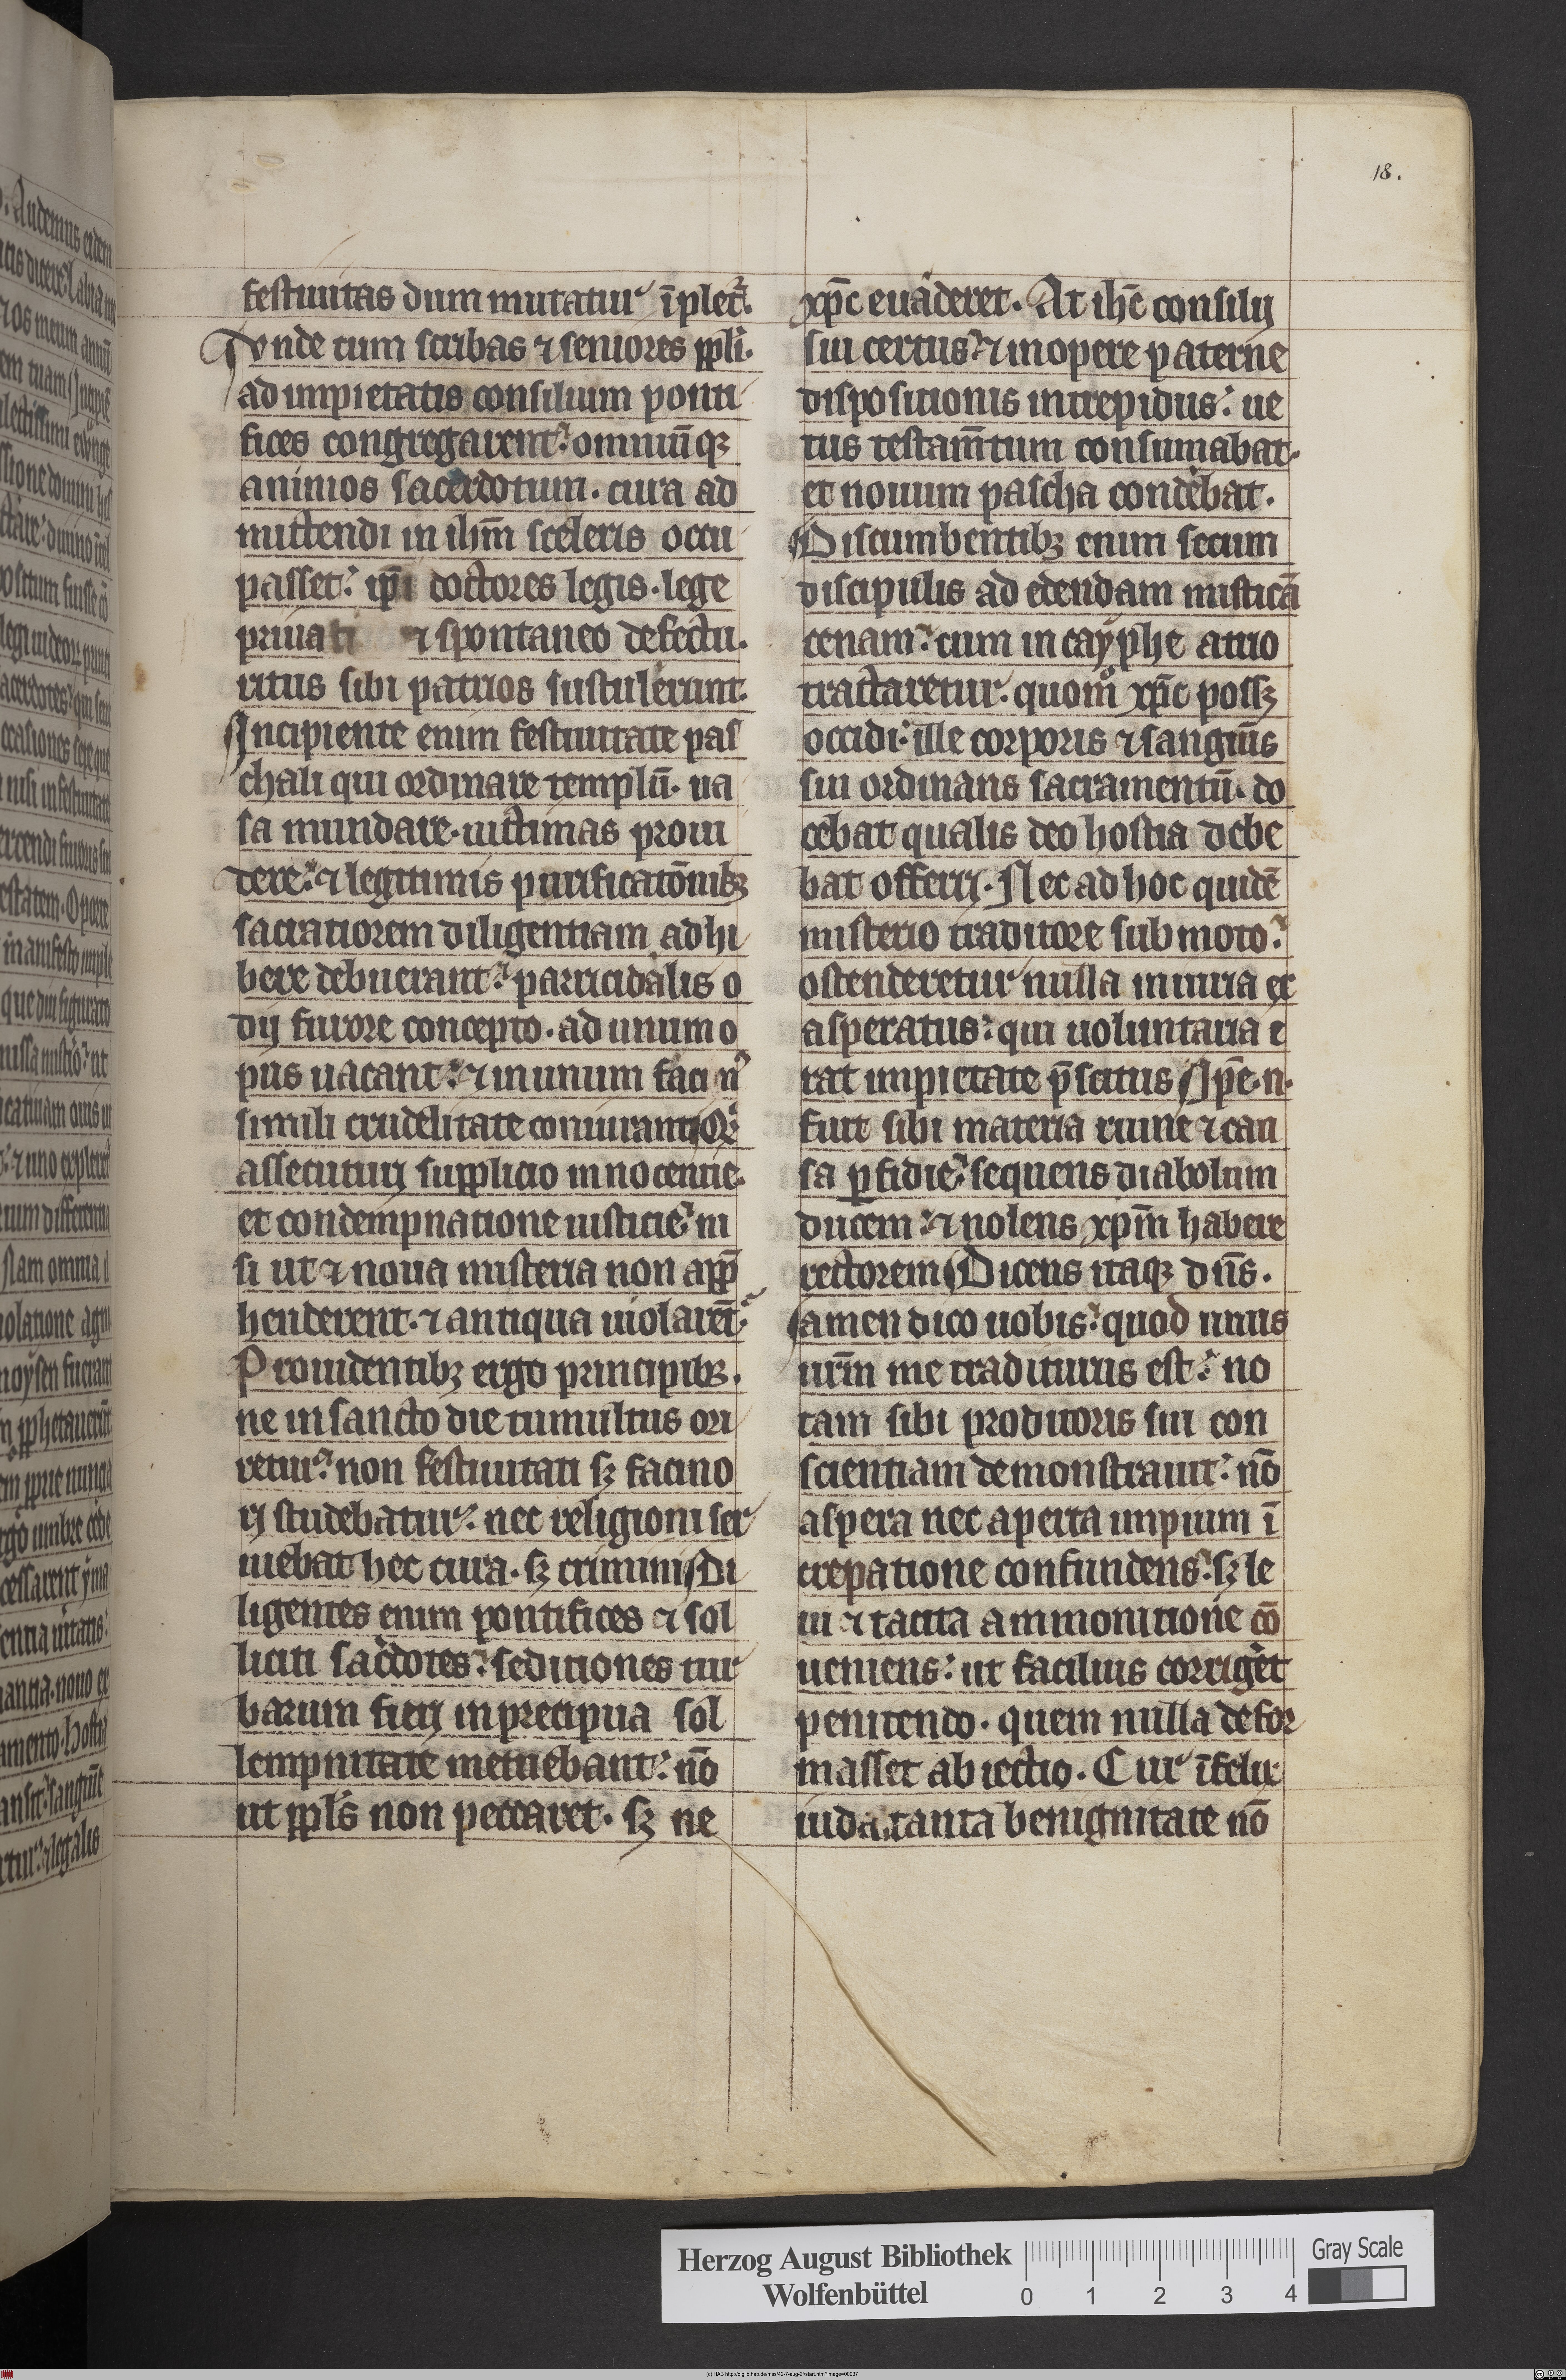 18.
festiuitas dum mutatur īplet᷑.
vnde cum scribas ⁊ seniores ppli.
ad impietatis consilium ponti
fices congregarent. omniūqꝫ
animos sacerdotum. cura ad
mittendi in ihm̄ sceleris occu
passet. ip̄i doctores legis. lege
priuati ⁊ spontaneo defectu.
ritus sibi patrios sustulerunt.
Incipiente enim festiuitate pas
chali qui ordinare templū. ua
sa mundare. uictimas proui
dere. ⁊ legitimis purificatōnibꝫ
sacratiorem diligentiam adhi
bere debuerant. parricidalis o
dij furore concepto. ad unum o
pus uacant. ⁊ in unum facin᷑
simili crudelitate coniurant
assecuturi supplicio innocentie.
et condempnatione iusticie. ni
si ut ⁊ noua misteria non app̄
henderent. ⁊ antiqua uiolarēt.
Prouidentibꝫ ergo principibꝫ.
ne in sancto die tumultus ori
retur. non festiuitati sꝫ facino
ri studebatur. nec religioni ser
uiebat hec cura. sꝫ crimini Di
ligentes enim pontifices ⁊ sol
liciti sac̄dotes. seditiones tur
barum fieri in precipua sol
lempnitate metuebant. nō
ut ppl̄s non peccaret. sꝫ ne
xp̄c euaderet. At ihc̄ consilij
sui certus. ⁊ in opere paterne
dispositionis intrepidus. ue
tus testam̄tum consumabat.
et nouum pascha condebat.
Discumbentibꝫ enim secum
discipulis ad edendam misticā
cenam. cum in cayphe atrio
tractaretur. quom̊ xp̄c possꝫ
occidi. ille corporis ⁊ sanguīs
sui ordinans sacramentū. do
cebat qualis deo hostia debe
bat offerri. Nec ab hoc quidē
misterio traditore submoto.
ostenderetur nulla iniuria ex
asperatus. qui uoluntaria e
rat impietate p̄scitus Ipe.n.
fuit sibi materia ruine ⁊ cau
sa ꝑfidie. sequens diabolum
ducem. ⁊ nolens xpm̄ habere
rectorem Dicens itaqꝫ dn̄s.
amen dico uobis. quod unus
urm̄ me traditurus est. no
tam sibi proditoris sui con
scientiam demonstrauit. nō
aspera nec aperta impium ī
crepatione confundens. sꝫ le
ui ⁊ tacita ammonitione cō
ueniens. ut facilius corriget
penitendo. quem nulla defor
masset abiectio. Cur īfelix
iuda. tanta benignitate nō
Herzog August Bibliothek
Wolfenbüttel
0 1 2 3 4
Gray Scale
(c) HAB http://diglib.hab.de/mss/42-7-aug-2f/start.htm?image=00037